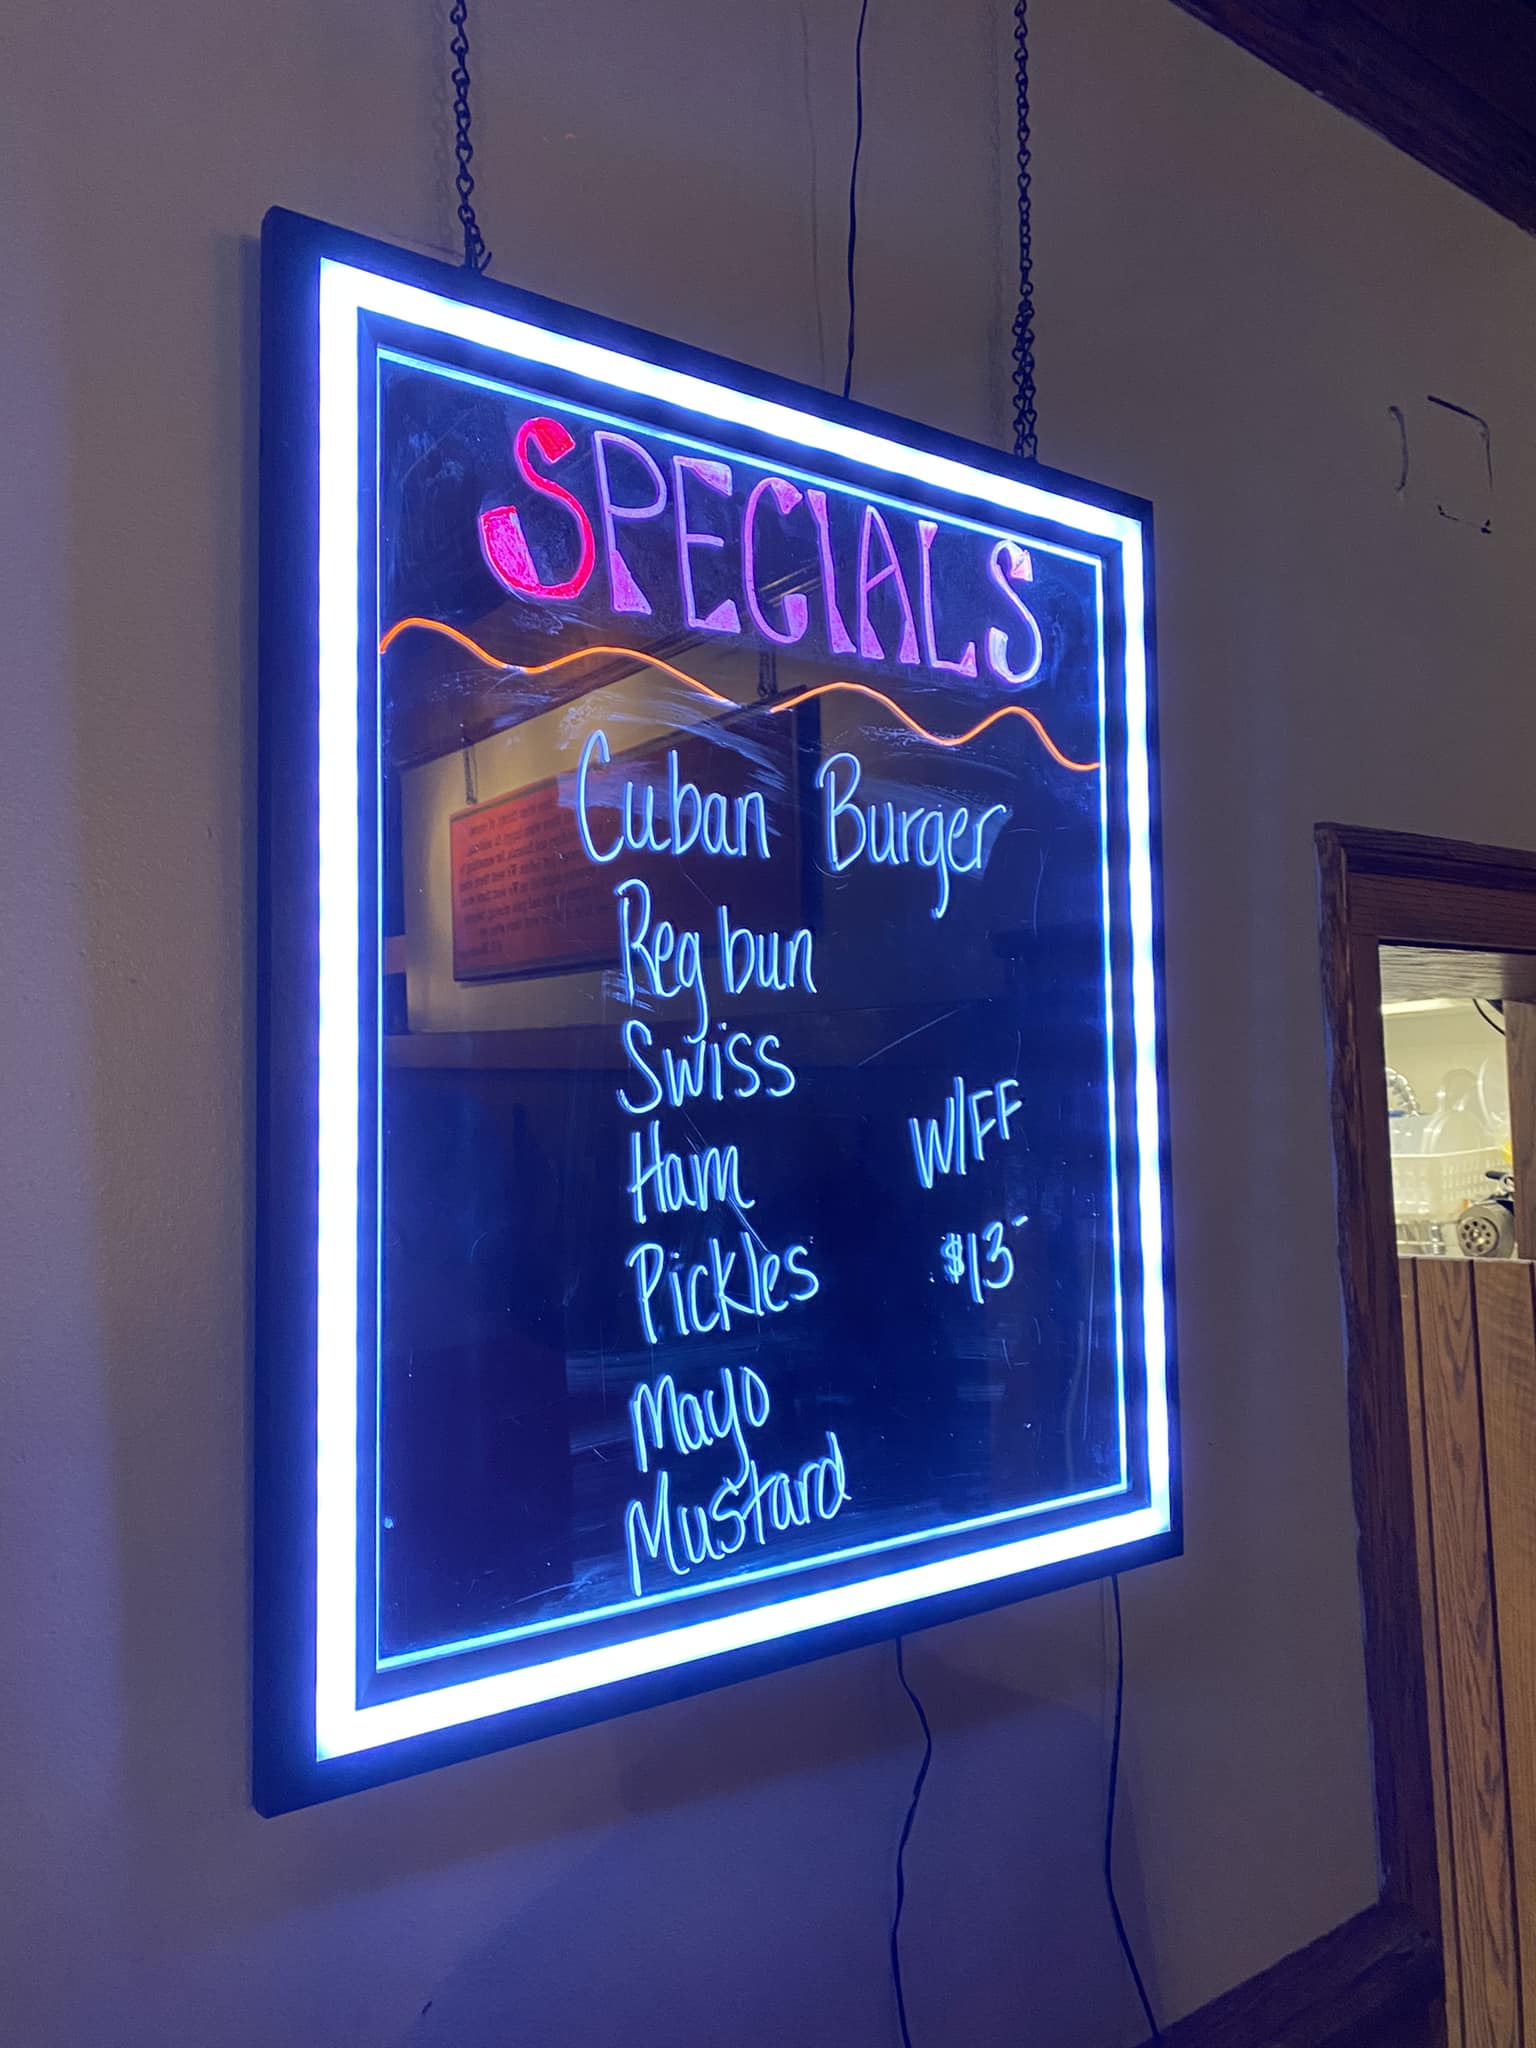 SPECIALS
Cuban Burger
Reg bun
Swiss
Ham
W/FF
Pickles
$13-
Mayo
Mustard